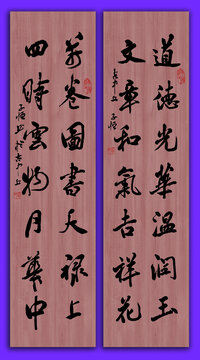 道德光華温潤玉
文章和氣吉祥花
萬卷圖書天禄上
四時雲物月華中